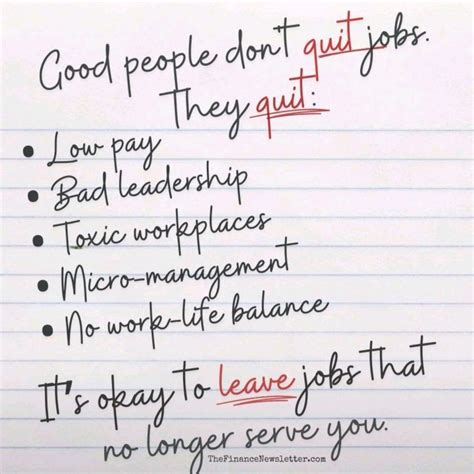 Good people don't quit jobs.
They quit:
• Low pay
• Bad leadership
• Toxic workplaces
• Micro-management
• No work-life balance
It's okay to leave jobs that
no longer serve you.
TheFinanceNewsletter.com